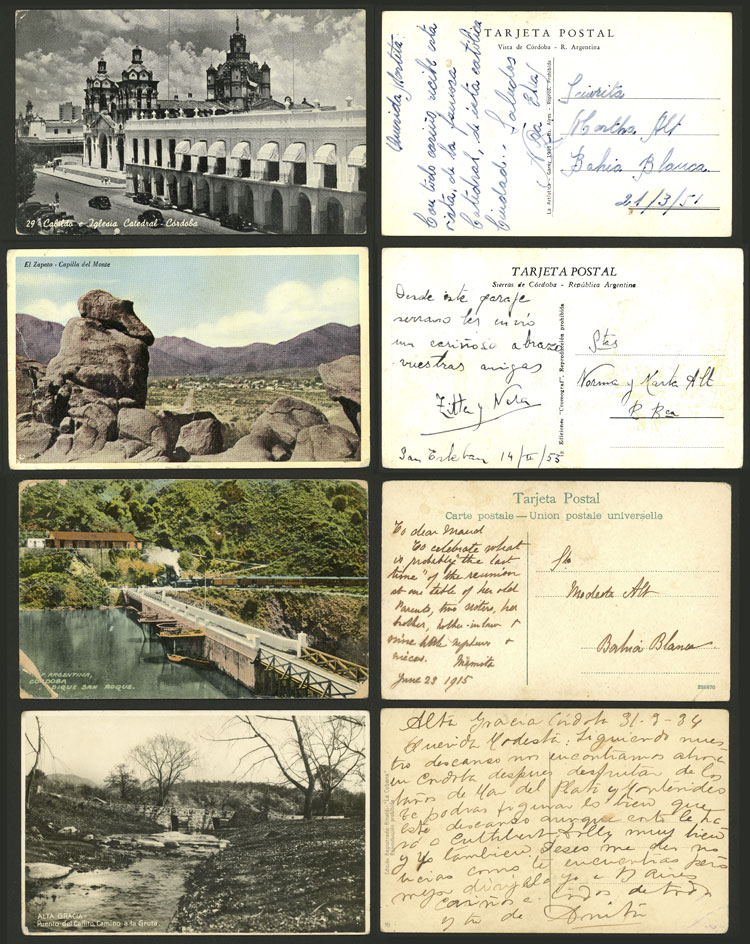 29 - Cabildo e Iglesia Catedral - Córdoba
TARJETA POSTAL
Vista de Córdoba - R. Argentina
Querida Martita:
Con todo cariño recibe esta
vista de la famosa
Catedral, de esta católica
Ciudad... Saludos
Señorita
Martha Alt
Bahia Blanca
21/3/51
El Zapato - Capilla del Monte
TARJETA POSTAL
Sierras de Córdoba - República Argentina
Desde este paraje
serrano les envío
un cariñoso abrazo
vuestras amigas
y Nora
San Esteban 14/II/55
Ediciones "Cosmograf". Reproducción prohibida
Stas
Norma y Marta Alt
B Bca
R. ARGENTINA,
CORDOBA
DIQUE SAN ROQUE.
Tarjeta Postal
Carte postale — Union postale universelle
To dear Maud
To celebrate what
is probably "the last
time" of the reunion
at one table of her old
Parents, two sisters, her
brother, brother-in-law &
nine little nephews &
nieces. Mamita
June 23 1915
Modesta Alt
Bahia Blanca
ALTA GRACIA
Puente del Cañito, Camino a la Gruta.
Alta Gracia Córdoba 31-3-34
Querida Modesta: Siguiendo nues-
tro descanso nos encontramos ahora
en Cordoba despues disfrutar de los
baños de Mar del Plata y Montevideo
Te podras figurar lo bien que
este descanso aunque corto le ha
a Cuthbert. Dolly muy bien
y yo tambien. Deseo me des no
ticias como te encuentras pero
mejor dirijala a B Aires
cariños a todos de toda
y tu de